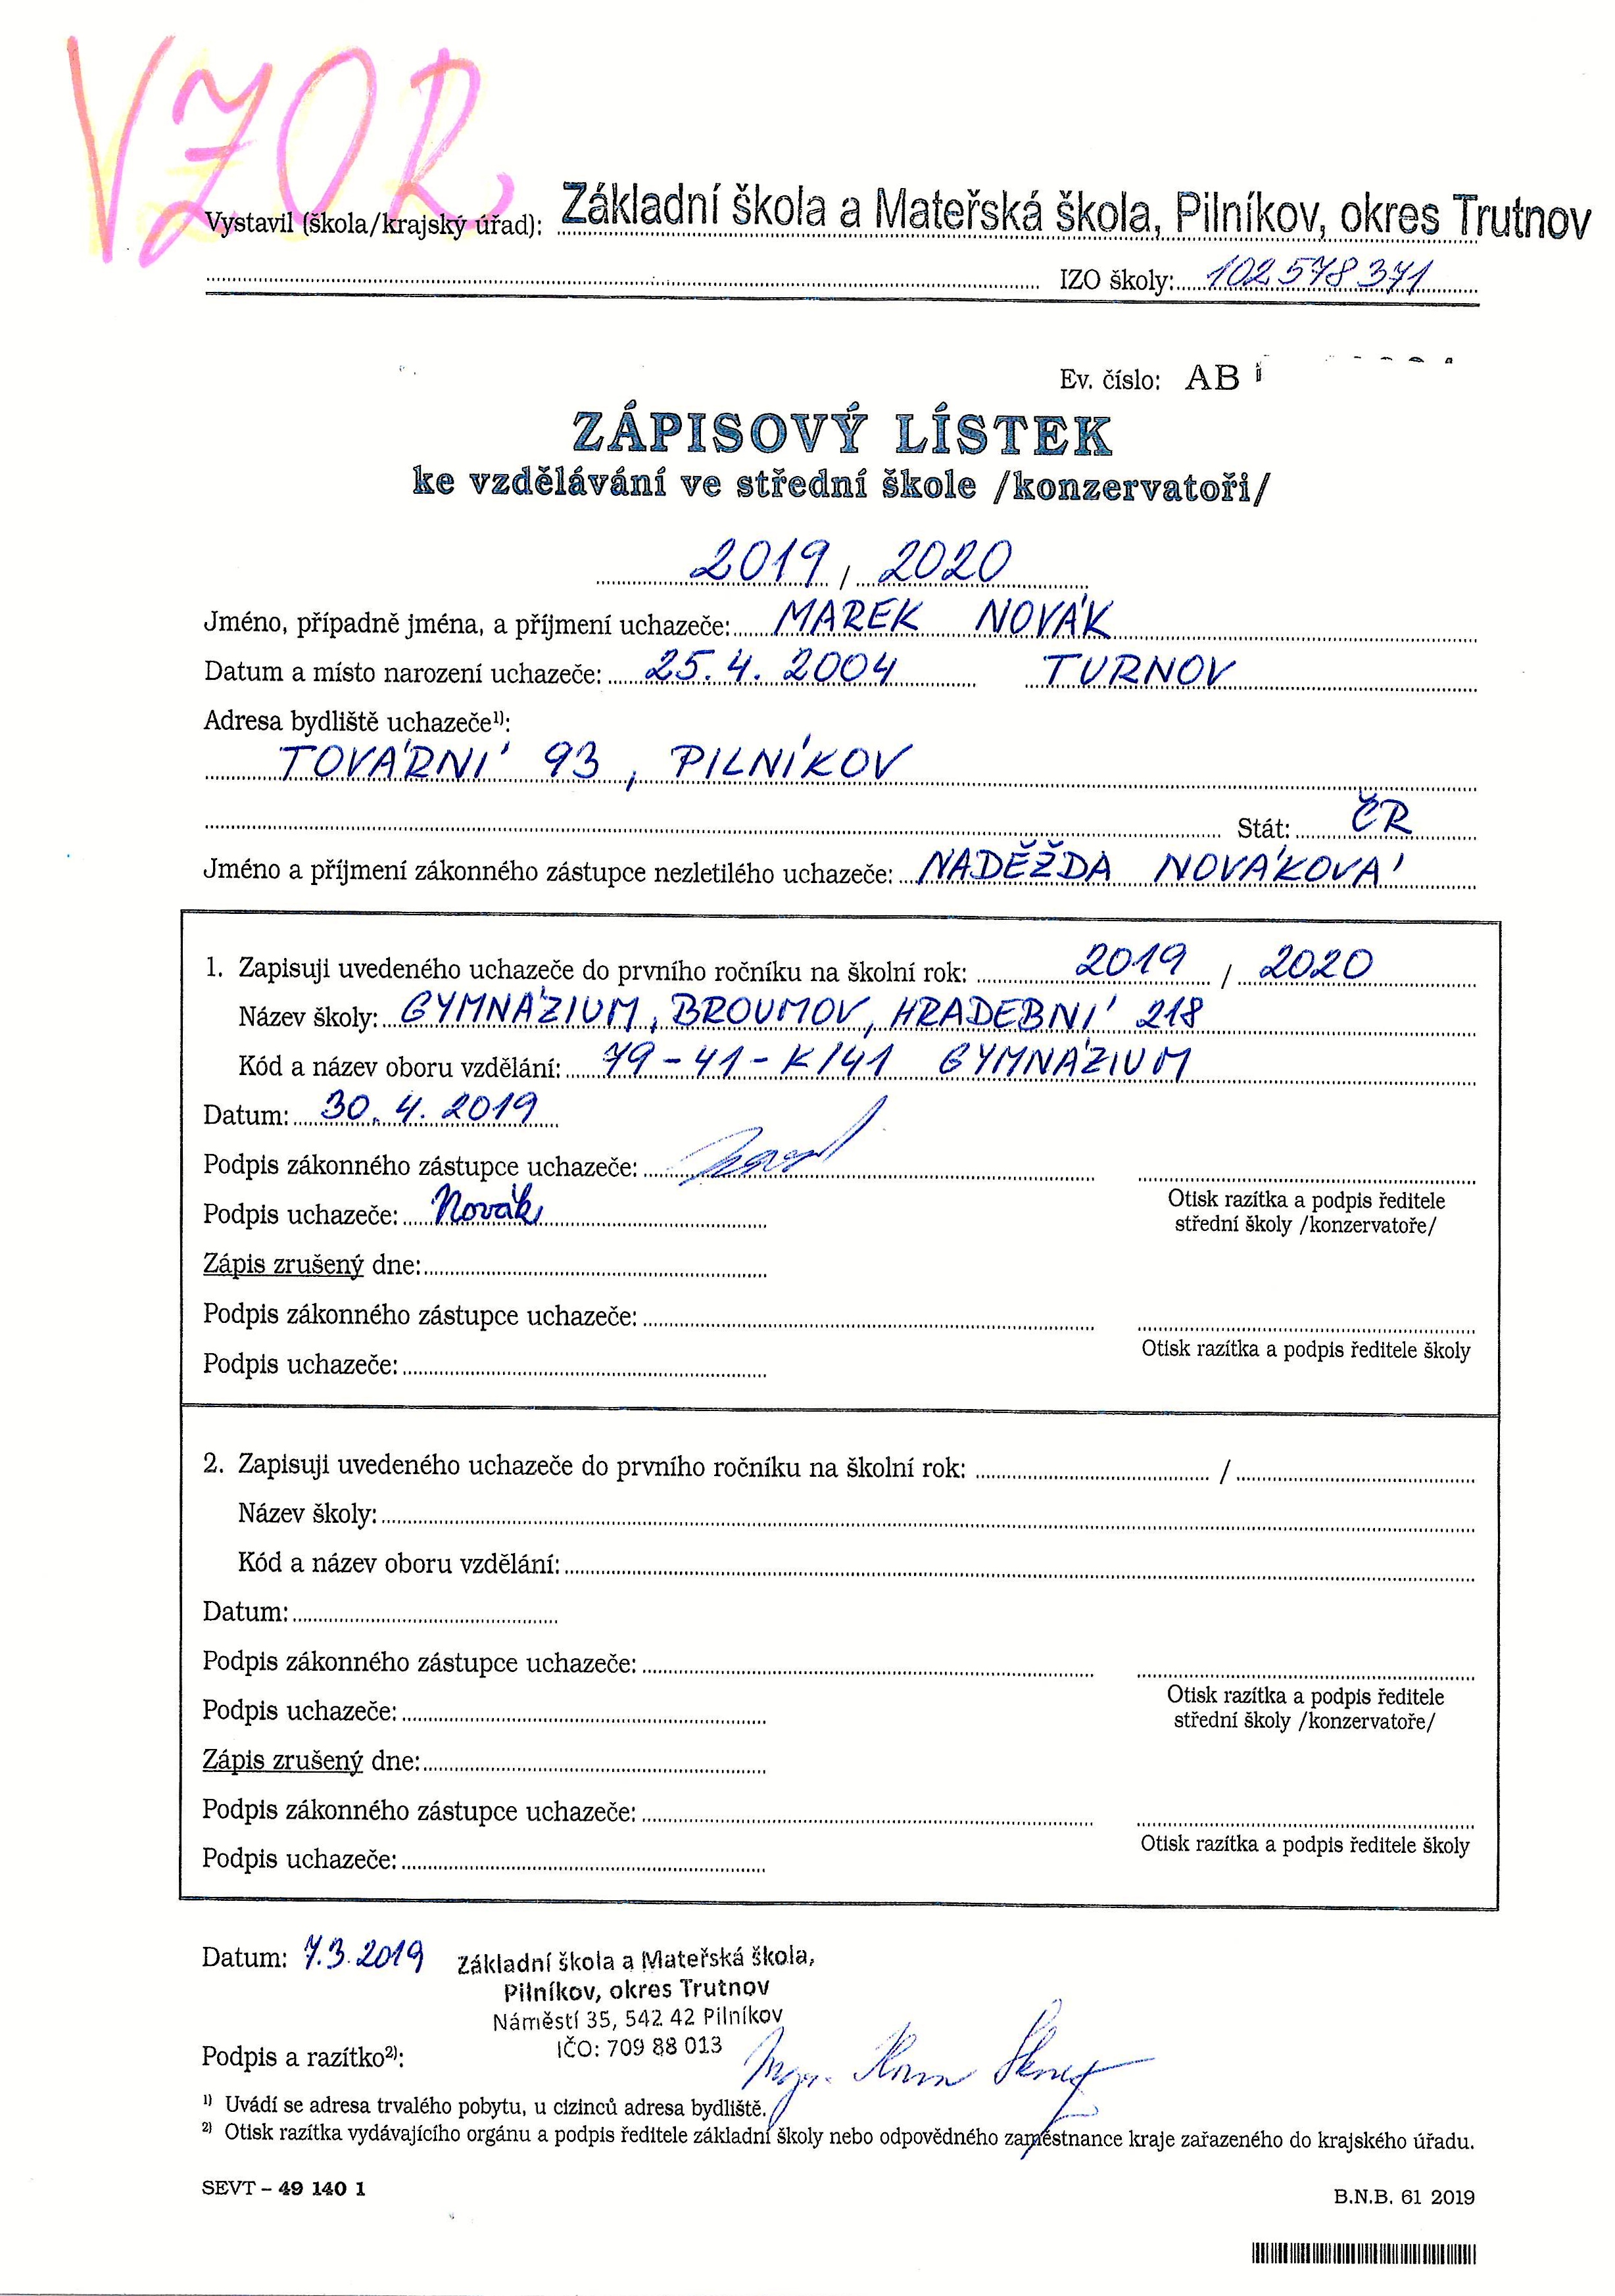 VZOR
Vystavil (škola/krajský úřad): Základní škola a Mateřská škola, Pilníkov, okres Trutnov
IZO školy: 102 578 371
Ev. číslo: AB
ZÁPISOVÝ LÍSTEK
ke vzdělávání ve střední škole /konzervatoři/
2019 / 2020
Jméno, případně jména, a příjmení uchazeče: MAREK NOVÁK
Datum a místo narození uchazeče: 25. 4. 2004 TURNOV
Adresa bydliště uchazeče1):
TOVÁRNÍ 93, PILNÍKOV
Stát: ČR
Jméno a příjmení zákonného zástupce nezletilého uchazeče: NADĚŽDA NOVÁKOVÁ
1. Zapisuji uvedeného uchazeče do prvního ročníku na školní rok: 2019 / 2020
Název školy: GYMNÁZIUM, BROUMOV, HRADEBNÍ 218
Kód a název oboru vzdělání: 79-41-K/41 GYMNÁZIUM
Datum: 30. 4. 2019
Podpis zákonného zástupce uchazeče:
Otisk razítka a podpis ředitele
střední školy /konzervatoře/
Podpis uchazeče: Novák
Zápis zrušený dne:
Podpis zákonného zástupce uchazeče:
Otisk razítka a podpis ředitele školy
Podpis uchazeče:
2. Zapisuji uvedeného uchazeče do prvního ročníku na školní rok: /
Název školy:
Kód a název oboru vzdělání:
Datum:
Podpis zákonného zástupce uchazeče:
Otisk razítka a podpis ředitele
střední školy /konzervatoře/
Podpis uchazeče:
Zápis zrušený dne:
Podpis zákonného zástupce uchazeče:
Otisk razítka a podpis ředitele školy
Podpis uchazeče:
Datum: 7.3.2019
Základní škola a Mateřská škola,
Pilníkov, okres Trutnov
Náměstí 35, 542 42 Pilníkov
IČO: 709 88 013
Podpis a razítko2): Mgr.
1) Uvádí se adresa trvalého pobytu, u cizinců adresa bydliště.
2) Otisk razítka vydávajícího orgánu a podpis ředitele základní školy nebo odpovědného zaměstnance kraje zařazeného do krajského úřadu.
SEVT – 49 140 1
B.N.B. 61 2019